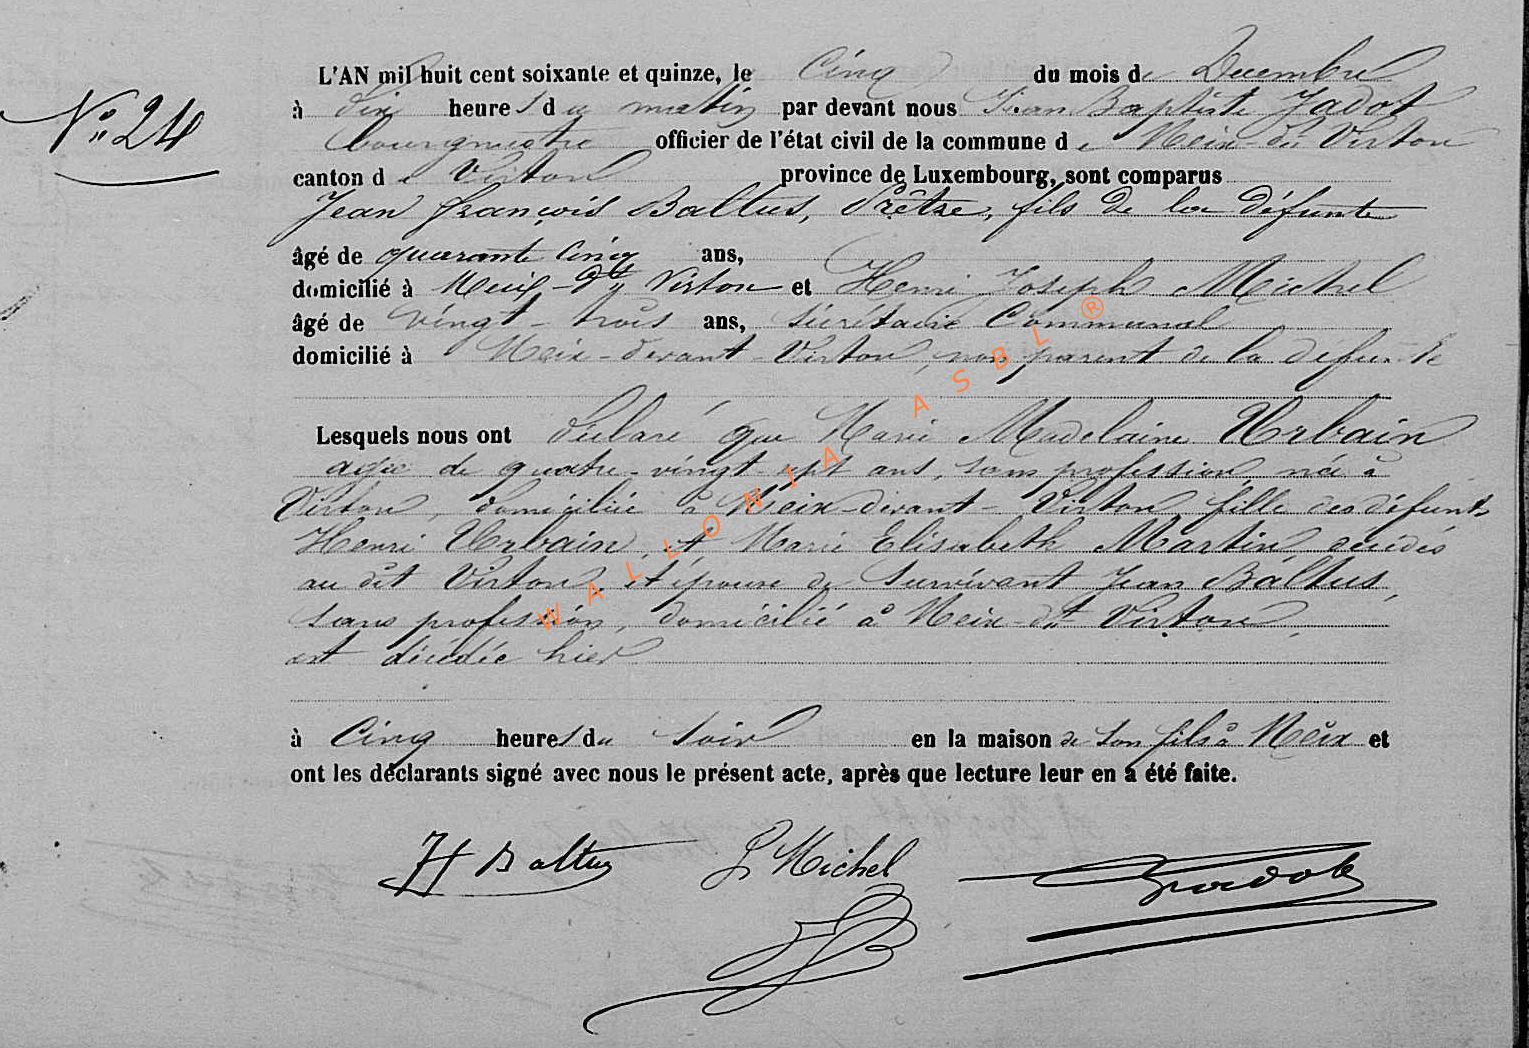 N° 24
L'AN mil huit cent soixante et quinze, le Cinq du mois de Decembre
à dix heures du matin par devant nous Jean Baptiste Jadot
bourgmestre officier de l'état civil de la commune de Meix-dt Virton
canton de Virton province de Luxembourg, sont comparus
Jean françois Baltus, Prêtre, fils de la défunte
âgé de quarante cinq ans,
domicilié à Meix-dt Virton et Henri Joseph Michel
âgé de vingt-trois ans, Sécrétaire Communal
domicilié à Meix-devant-Virton, non parent de la defunte
Lesquels nous ont déclaré que Marie Madelaine Urbain
agée de quatre-vingt-sept ans, sans profession, née à
Virton, domiciliée à Meix-devant-Virton fille des défunts
Henri Urbain, et Marie Elisabeth Martin, décédés
au dit Virton, et épouse de Survivant Jean Baltus,
sans profession, domicilié à Meix-dt Virton,
est décédée hier
à Cinq heures du Soir en la maison de son fils à Meix et
ont les déclarants signé avec nous le présent acte, après que lecture leur en a été faite.
JF Baltus Michel Jadot
WALLONIA ASBL ®